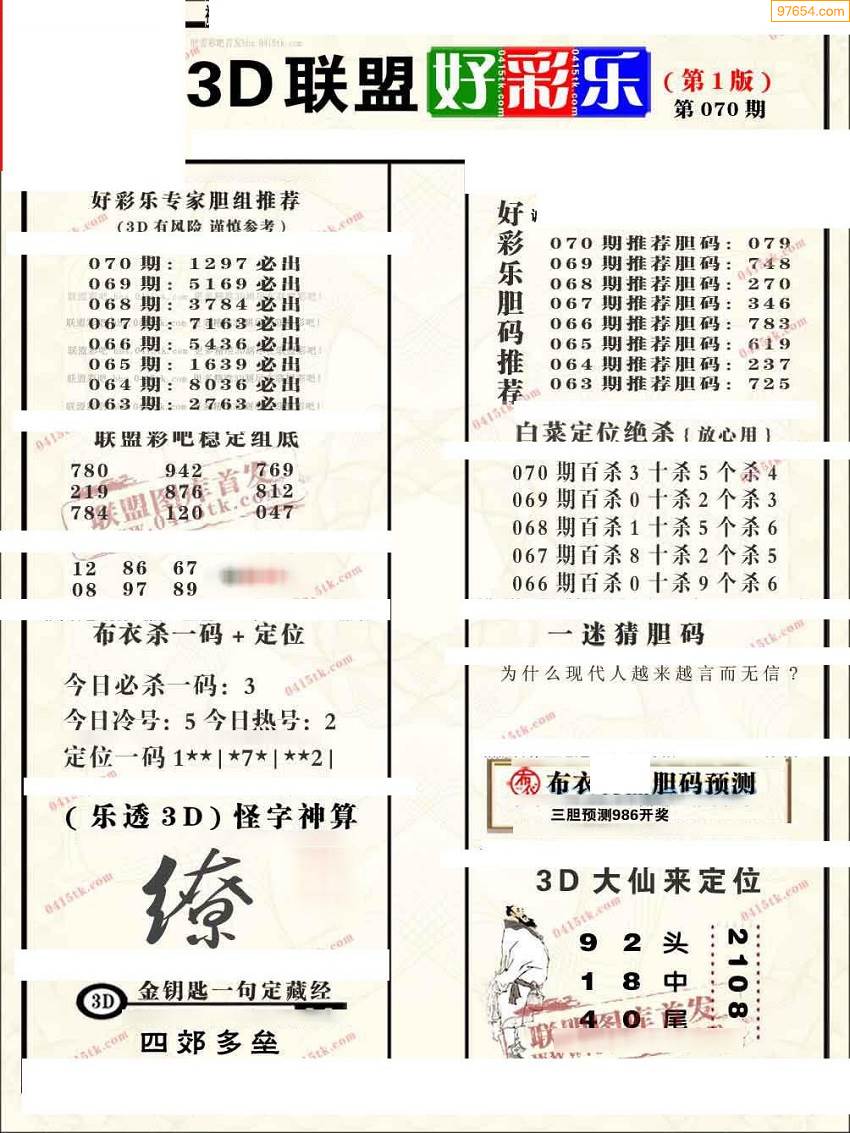 97654.com
3D联盟好彩乐
(第1版)
第070期
好彩乐专家胆组推荐
(3D有风险 谨慎参考)
070期: 1297必出
069期: 5169必出
068期: 3784必出
067期: 7163必出
066期: 5436必出
065期: 1639必出
064期: 8036必出
063期: 2763必出
联盟彩吧稳定组底
780 942 769
219 876 812
784 120 047
12 86 67
08 97 89
布衣杀一码+定位
今日必杀一码: 3
今日冷号: 5 今日热号: 2
定位一码 1**|*7*|**2|
(乐透3D)怪字神算
缭
3D 金钥匙一句定藏经
四郊多垒
好彩乐胆码推荐
070期推荐胆码: 079
069期推荐胆码: 748
068期推荐胆码: 270
067期推荐胆码: 346
066期推荐胆码: 783
065期推荐胆码: 619
064期推荐胆码: 237
063期推荐胆码: 725
白菜定位绝杀{放心用}
070期百杀3十杀5个杀4
069期百杀0十杀2个杀3
068期百杀1十杀5个杀6
067期百杀8十杀2个杀5
066期百杀0十杀9个杀6
一迷猜胆码
为什么现代人越来越言而无信?
布衣 胆码预测
三胆预测986开奖
3D大仙来定位
9 2 头
1 8 中
4 0 尾
2108
联盟图库首发
0415tk.com